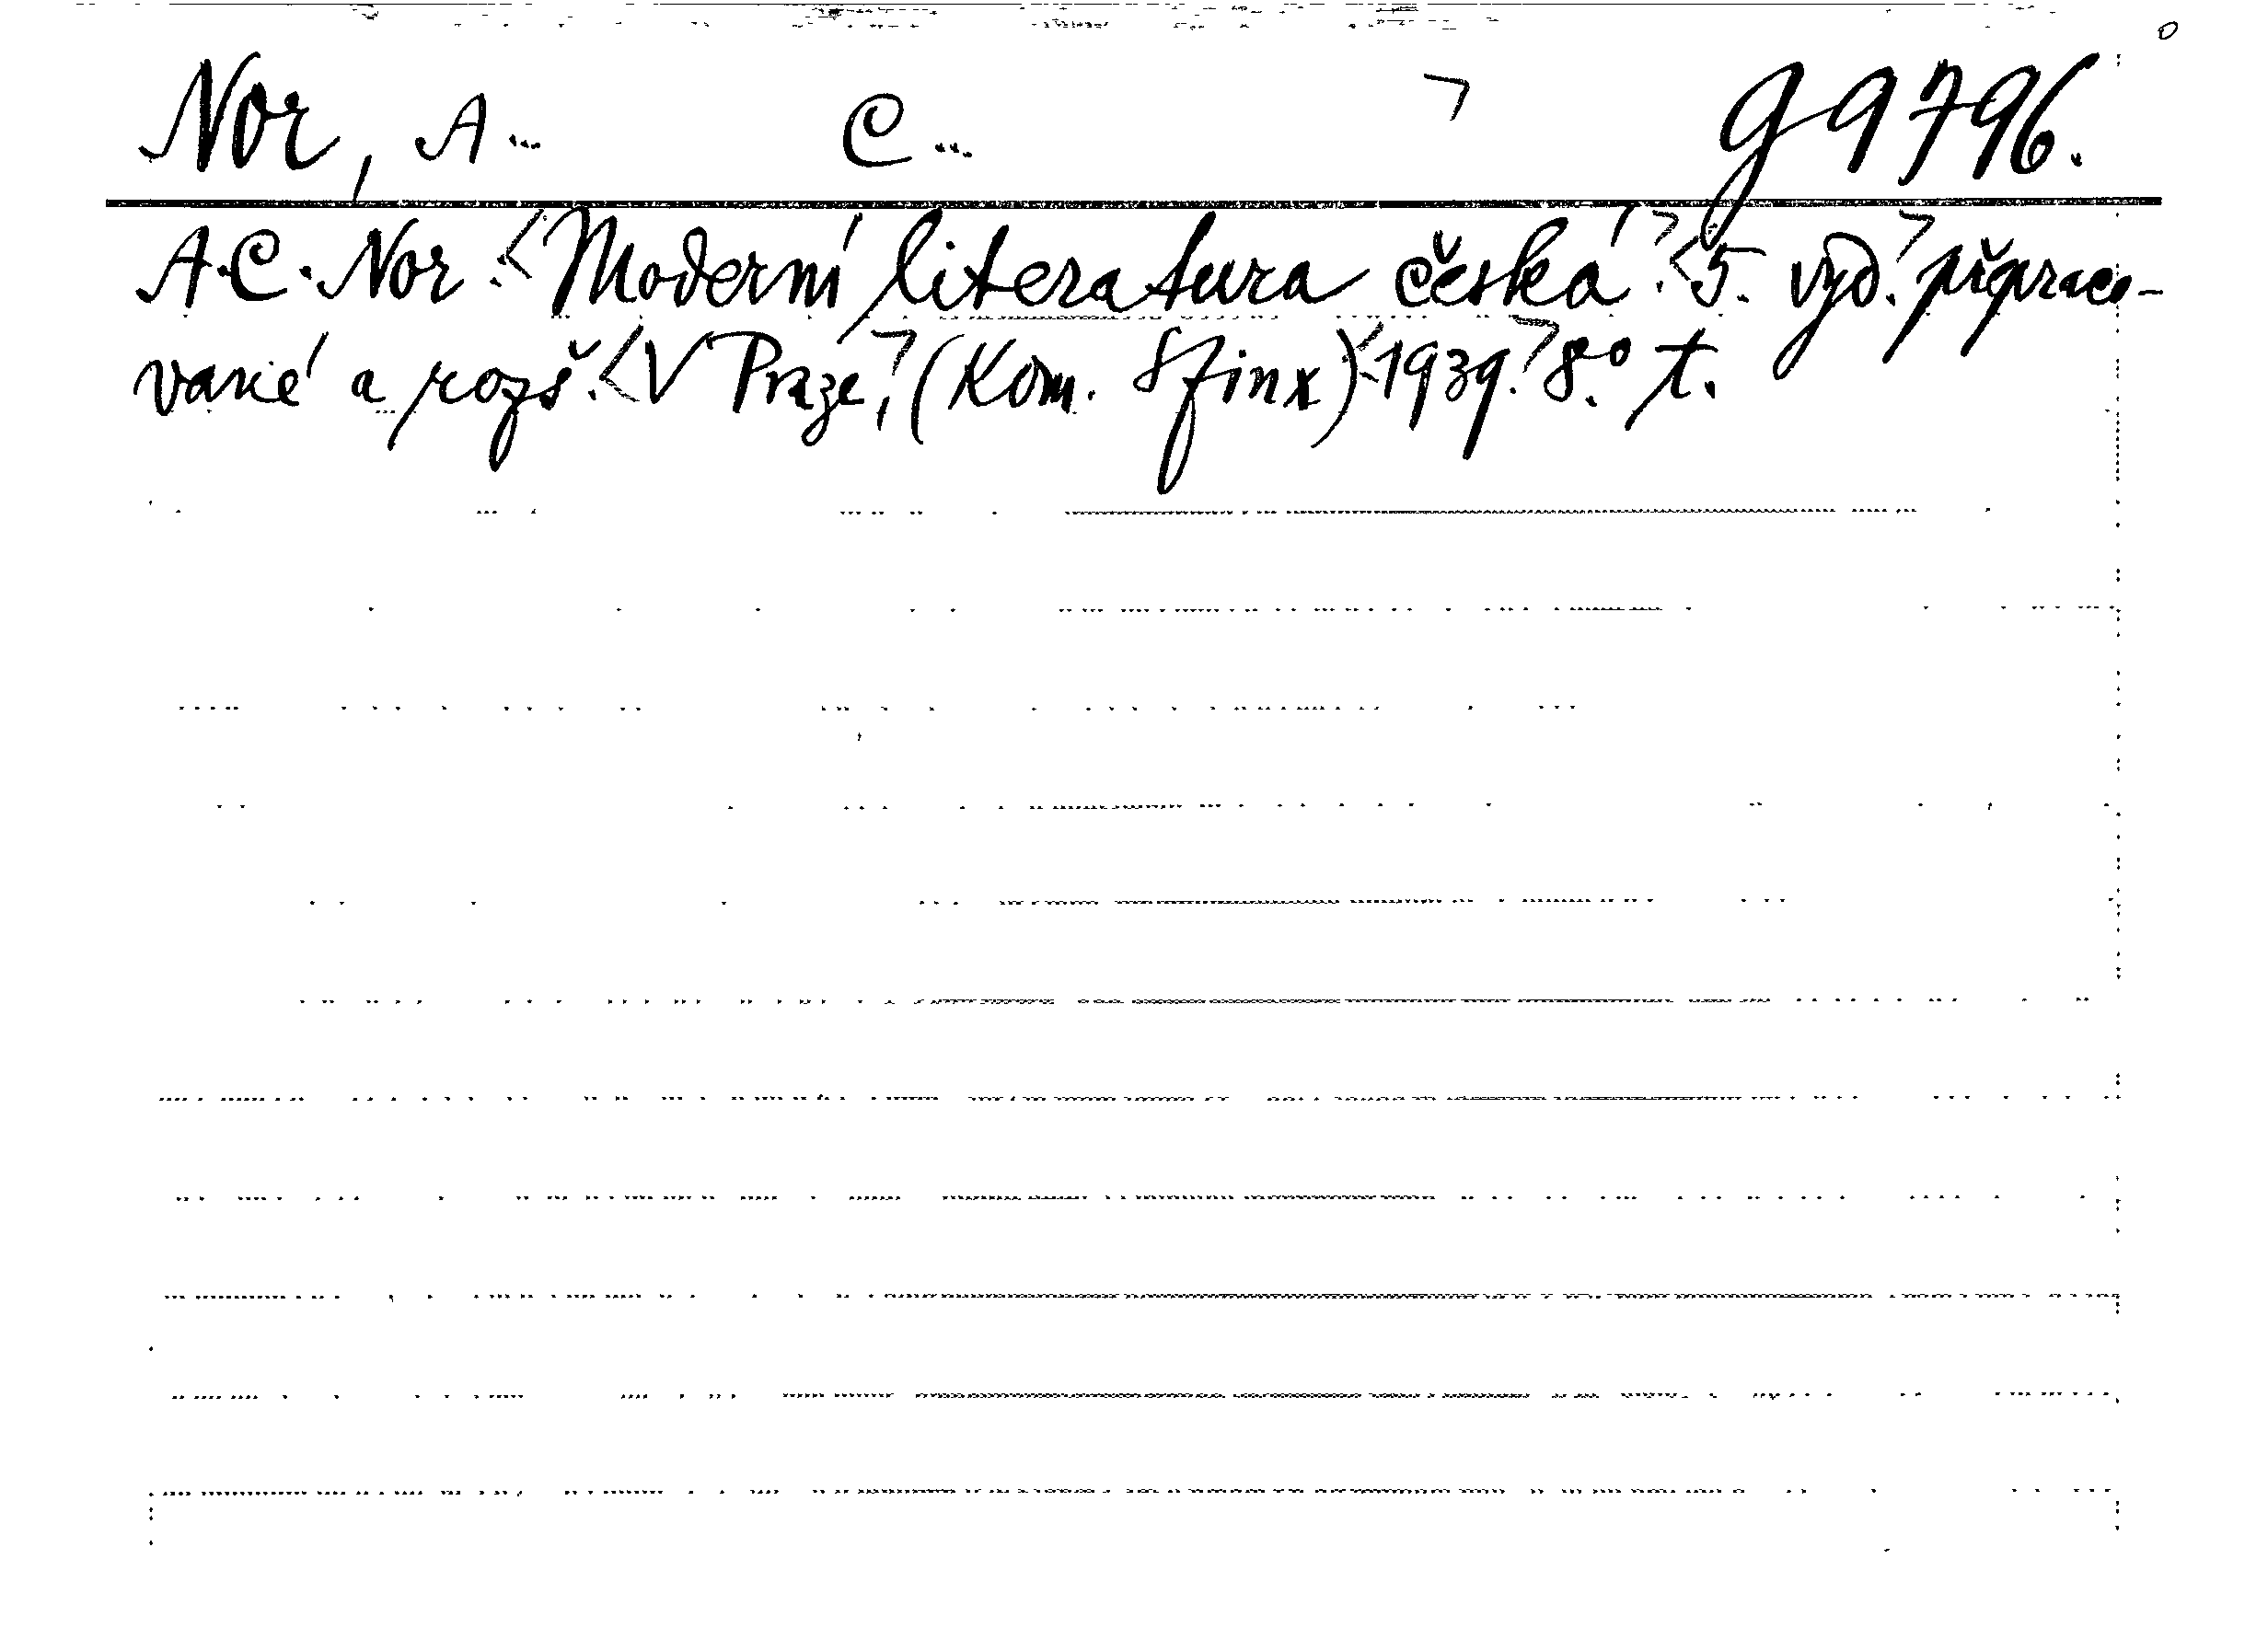 Nor, A... C... g 9796.
A. C. Nor: Moderní literatura česká. 5. vyd. přepraco-
vané a rozš. V Praze, (Kom. Sfinx) 1939. 8.° t.